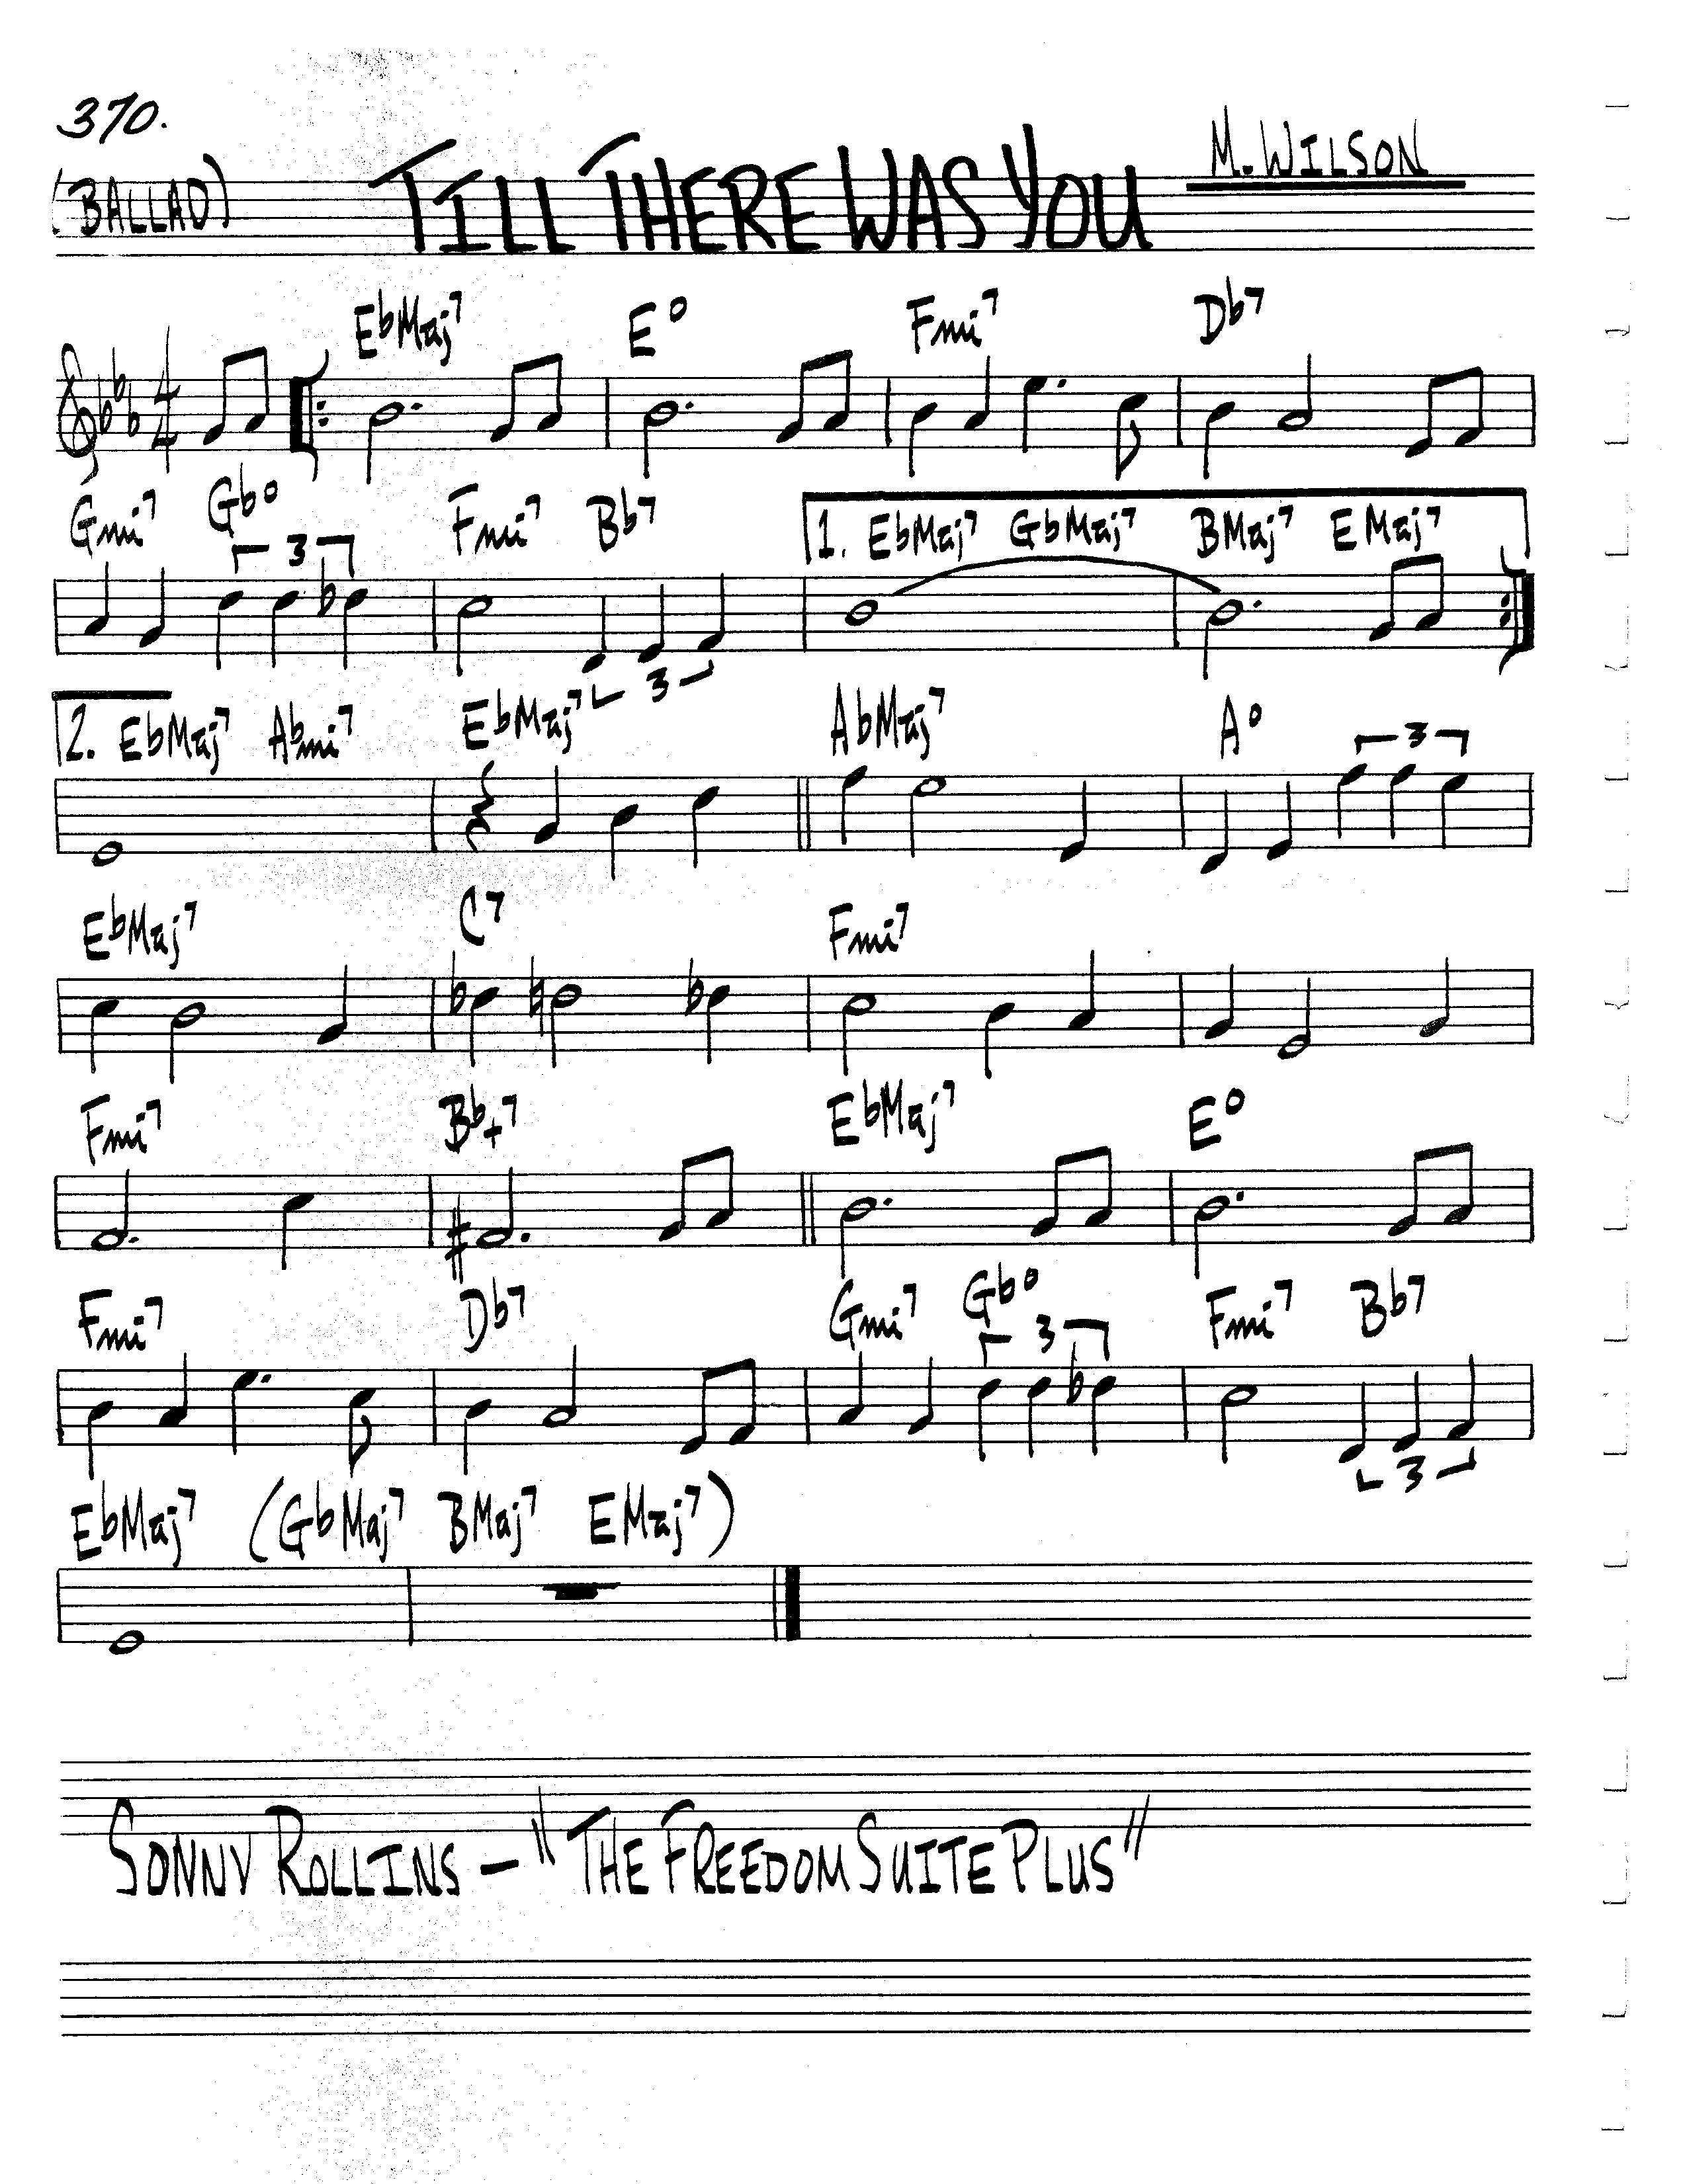 370.
(BALLAD) TILL THERE WAS YOU M. WILSON
EbMaj7 E° Fmi7 Db7
4
4
Gmi7 Gb° Fmi7 Bb7 1. EbMaj7 GbMaj7 BMaj7 EMaj7
3
3
2. EbMaj7 Abmi7 EbMaj7 AbMaj7 A°
3
EbMaj7 C7 Fmi7
Fmi7 Bb+7 EbMaj7 E°
Fmi7 Db7 Gmi7 Gb° Fmi7 Bb7
3
3
EbMaj7 (GbMaj7 BMaj7 EMaj7)
SONNY ROLLINS – "THE FREEDOM SUITE PLUS"